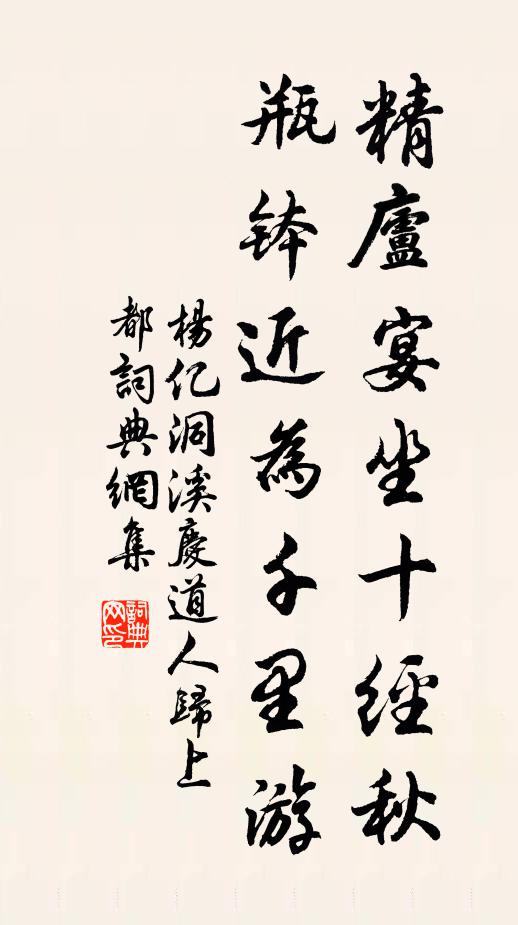 精廬宴坐十經秋
瓶鉢近為千里游
楊亿洞溪慶道人歸上
都詞典網集
詞典
网印